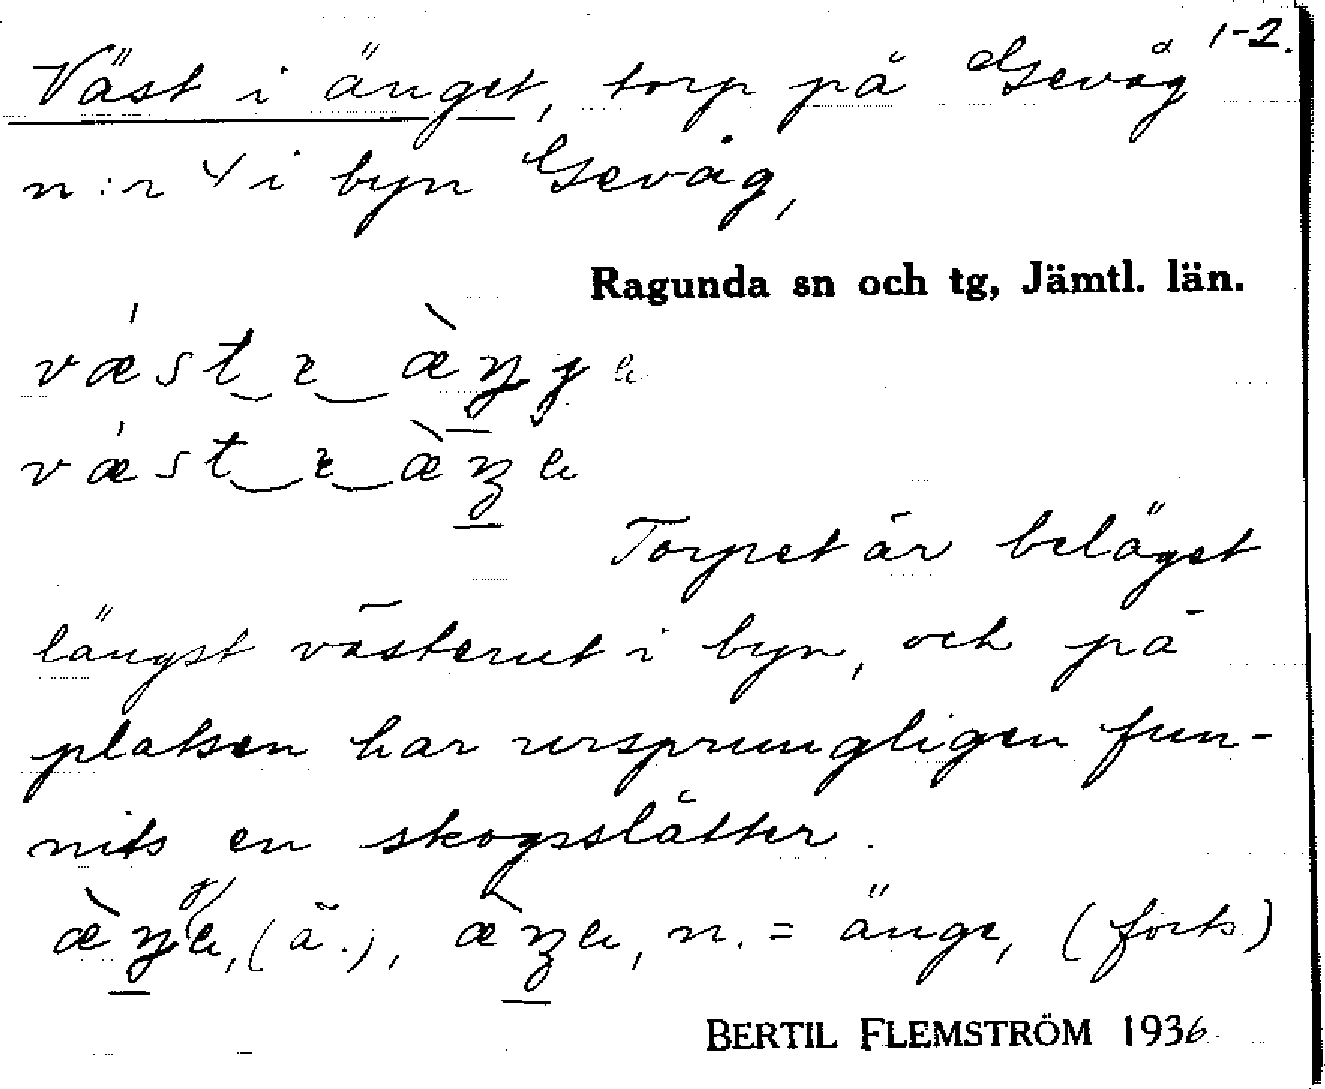 1-2.
Väst i änget, torp på Gevåg
n:r 4 i byn Gevåg,
Ragunda sn och tg, Jämtl. län.
Torpet är beläget
längst västerut i byn, och på
platsen har ursprungligen fun-
nits en skogsslåtter.
(ä.), n. = änge, (forts)
BERTIL FLEMSTRÖM 1936